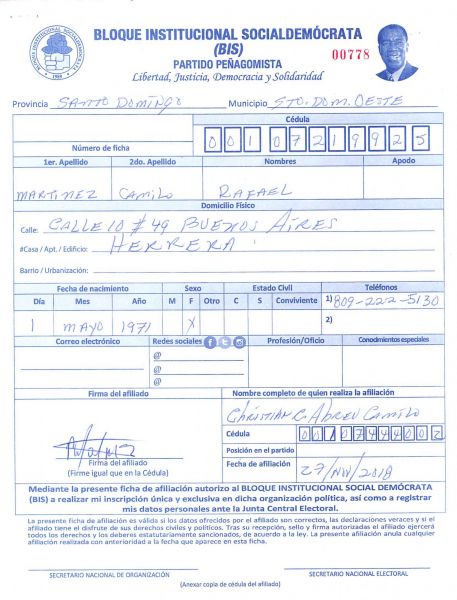 BLOQUE INSTITUCIONAL SOCIALDEMÓCRATA
(BIS)
PARTIDO PEÑAGOMISTA
Libertad, Justicia, Democracia y Solidaridad
00778
Provincia SANTO DOMINGO Municipio STO. DOM. OESTE
Cédula
Número de ficha 001 0721992 5
1er. Apellido 2do. Apellido Nombres Apodo
MARTINEZ CAMILO RAFAEL
Domicilio Físico
Calle: CALLE 10 # 49 BUENOS AIRES
#Casa / Apt. / Edificio: HERRERA
Barrio / Urbanización:
Fecha de nacimiento Sexo Estado Civil Teléfonos
Día Mes Año M F Otro C S Conviviente 1) 809-222-5130
1 MAYO 1971 X 2)
Correo electrónico Redes sociales Profesión/Oficio Conodmientos especiales
@
@
@
Firma del afiliado Nombre completo de quien realiza la afiliación
CHRISTIAN C. ABREU CAMILO
Cédula 001 0744400 2
Posición en el partido
Firma del afiliado
(Firme igual que en la Cédula)
Fecha de afiliación 27/NOV/2018
Mediante la presente ficha de afiliación autorizo al BLOQUE INSTITUCIONAL SOCIAL DEMÓCRATA
(BIS) a realizar mi inscripción única y exclusiva en dicha organización política, así como a registrar
mis datos personales ante la Junta Central Electoral.
La presente ficha de afiliación es válida si los datos ofrecidos por el afiliado son correctos, las declaraciones veraces y si el
afiliado tiene el disfrute de sus derechos civiles y políticos. Tras su recepción, sello y firma autorizadas el afiliado ejercerá
todos los derechos y los deberes estatutariamente sancionados, de acuerdo a la ley. La presente afiliación anula cualquier
afiliación realizada con anterioridad a la fecha que aparece en esta ficha.
SECRETARIO NACIONAL DE ORGANIZACIÓN SECRETARIO NACIONAL ELECTORAL
(Anexar copia de cédula del afiliado)